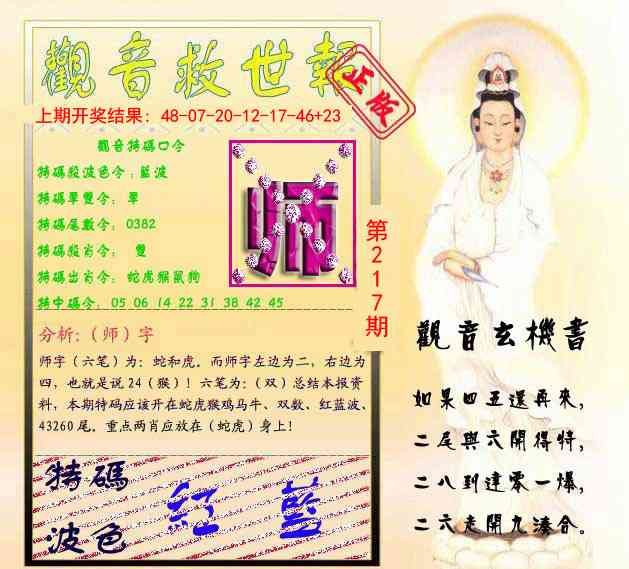 觀音救世報
正版
上期开奖结果：48-07-20-12-17-46+23
觀音特碼口令
特碼殺波色令：藍波
特碼單雙令：單
特碼尾數令：0382
特碼殺肖令：雙
特碼出肖令：蛇虎猴鼠狗
特中碼令：05 06 14 22 31 38 42 45
师
第217期
分析:（师）字
师字（六笔）为：蛇和虎。而师字左边为二，右边为
四，也就是说24（猴）！六笔为:（双）总结本报资
料，本期特码应该开在蛇虎猴鸡马牛、双数、红蓝波、
43260尾。重点两肖应放在（蛇虎）身上！
特碼
波色
紅 藍
觀音玄機書
如果四五還再來,
二尾與六開得特,
二八到達零一爆,
二六走開九湊合。